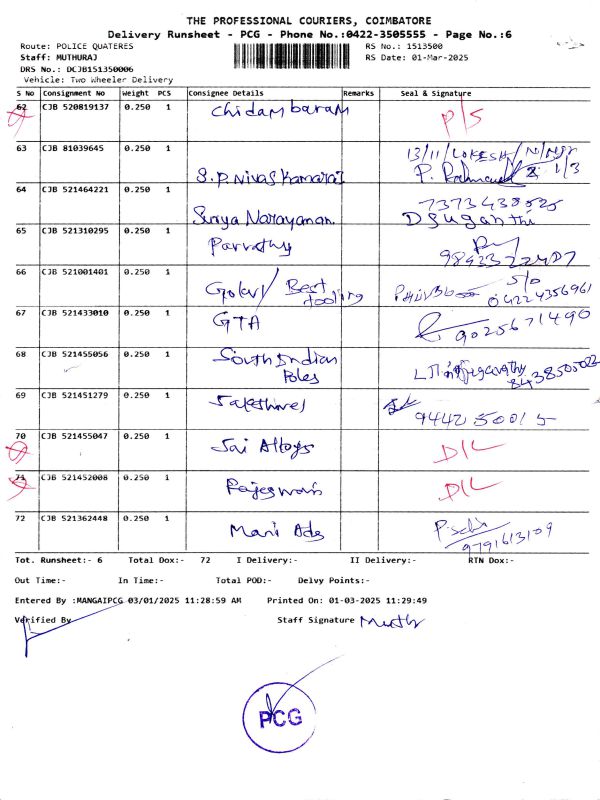 THE PROFESSIONAL COURIERS, COIMBATORE
Delivery Runsheet - PCG - Phone No.:0422-3505555 - Page No.:6
Route: POLICE QUATERES RS No.: 1513500
Staff: MUTHURAJ RS Date: 01-Mar-2025
DRS No.: DCJB151350006
Vehicle: Two Wheeler Delivery
S No Consignment No Weight PCS Consignee Details Remarks Seal & Signature
62 CJB 520819137 0.250 1 Chidambaram P/S
63 CJB 81039645 0.250 1 S.P. Nivas Kamaraj 13/11/LOKESH/N/Ngr
1/3
64 CJB 521464221 0.250 1 Surya Narayanan
D Suganthi
65 CJB 521310295 0.250 1 Parvathy
66 CJB 521001401 0.250 1 Best tooling S/O
04224356961
67 CJB 521433010 0.250 1 GTA 9025671490
68 CJB 521455056 0.250 1 South Indian Poles
8438505022
69 CJB 521451279 0.250 1
70 CJB 521455047 0.250 1 Sai Alloys D/L
71 CJB 521452008 0.250 1 Rajeswari D/L
72 CJB 521362448 0.250 1 Mani Ads
9791613109
Tot. Runsheet:- 6 Total Dox:- 72 I Delivery:- II Delivery:- RTN Dox:-
Out Time:- In Time:- Total POD:- Delvy Points:-
Entered By :MANGAIPCG 03/01/2025 11:28:59 AM Printed On: 01-03-2025 11:29:49
Verified By Staff Signature Muth
PCG